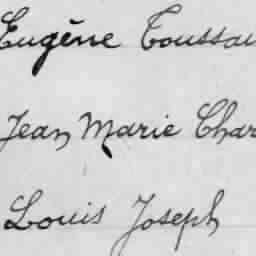 Eugène Toussai
Jean Marie Char
Louis Joseph